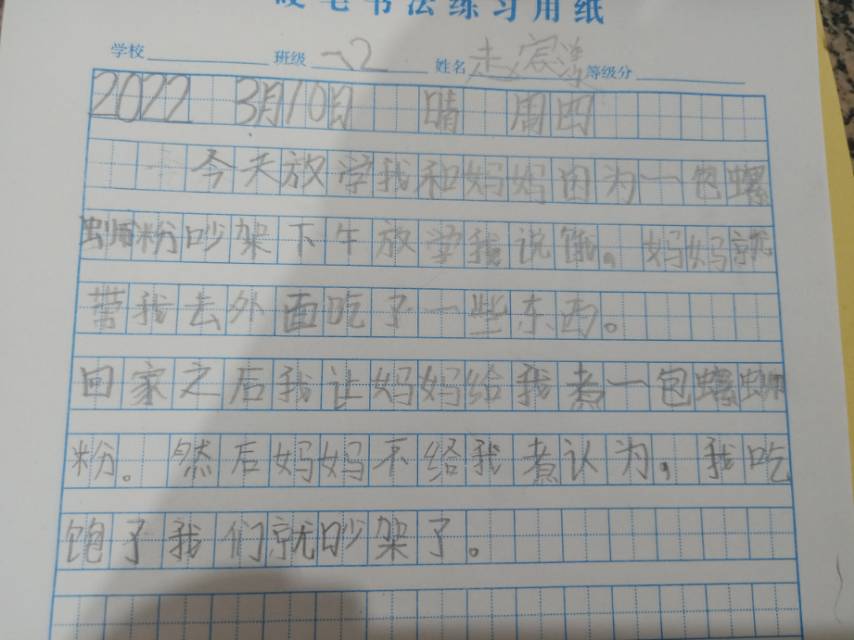 硬笔书法练习用纸
学校 班级 一2 姓名 走 等级分
2022 3月10日 晴 周四
今天放学我和妈妈因为一包螺
蛳粉吵架下午放学我说饿。妈妈就
带我去外面吃了一些东西。
回家之后我让妈妈给我煮一包螺蛳
粉。然后妈妈不给我煮认为,我吃
饱了我们就吵架了。